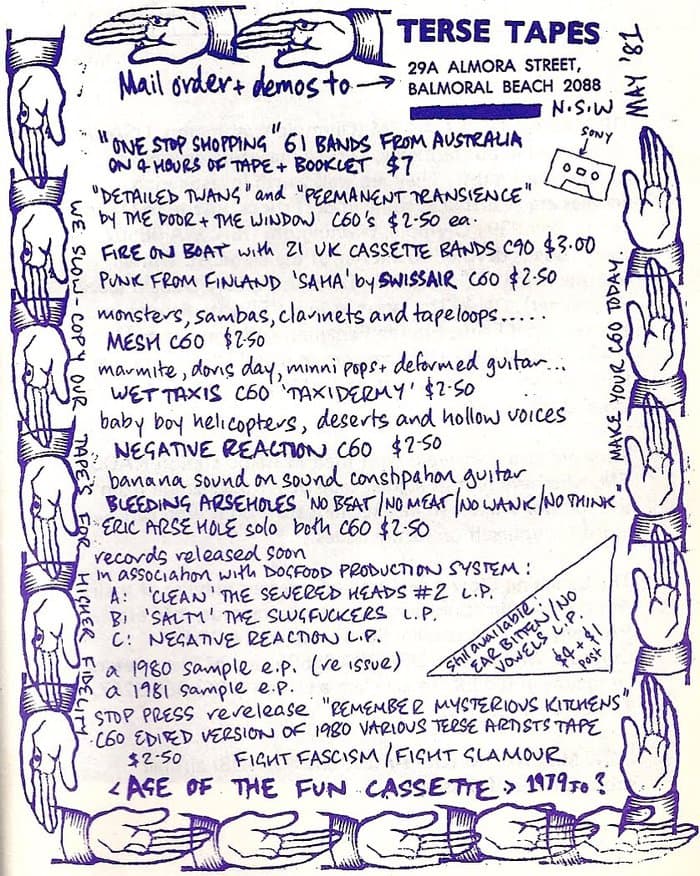 TERSE TAPES
29A ALMORA STREET,
BALMORAL BEACH 2088
N.S.W
MAY '81
Mail order + demos to →
SONY
"ONE STOP SHOPPING" 61 BANDS FROM AUSTRALIA
ON 4 HOURS OF TAPE + BOOKLET $7
"DETAILED TWANG" and "PERMANENT TRANSIENCE"
by THE DOOR + THE WINDOW C60's $2-50 ea.
FIRE ON BOAT with 21 UK CASSETTE BANDS C90 $3.00
PUNK FROM FINLAND 'SAHA' by SWISSAIR C60 $2-50
monsters, sambas, clarinets and tapeloops......
MESH C60 $2-50
marmite, doris day, minni pops + deformed guitar...
WET TAXIS C60 'TAXIDERMY' $2-50
baby boy helicopters, deserts and hollow voices
NEGATIVE REACTION C60 $2-50
banana sound on sound constipation guitar
BLEEDING ARSEHOLES 'NO BEAT/NO MEAT/NO WANK/NO THINK'
ERIC ARSEHOLE solo both C60 $2-50
records released soon
in association with DOGFOOD PRODUCTION SYSTEM:
A: 'CLEAN' THE SEVERED HEADS #2 L.P.
B: 'SALTY' THE SLUGFUCKERS L.P.
C: NEGATIVE REACTION L.P.
a 1980 sample e.p. (re issue)
a 1981 sample e.p.
still available:
EAR BITTEN/NO
VOWELS L.P.
$4 + $1
post
STOP PRESS rerelease "REMEMBER MYSTERIOUS KITCHENS"
C60 EDITED VERSION OF 1980 VARIOUS TERSE ARTISTS TAPE
$2-50 FIGHT FASCISM/FIGHT GLAMOUR
< AGE OF THE FUN CASSETTE > 1979 to ?
WE SLOW-COPY OUR TAPES FOR HIGHER FIDELITY
MAKE YOUR C60 TODAY.